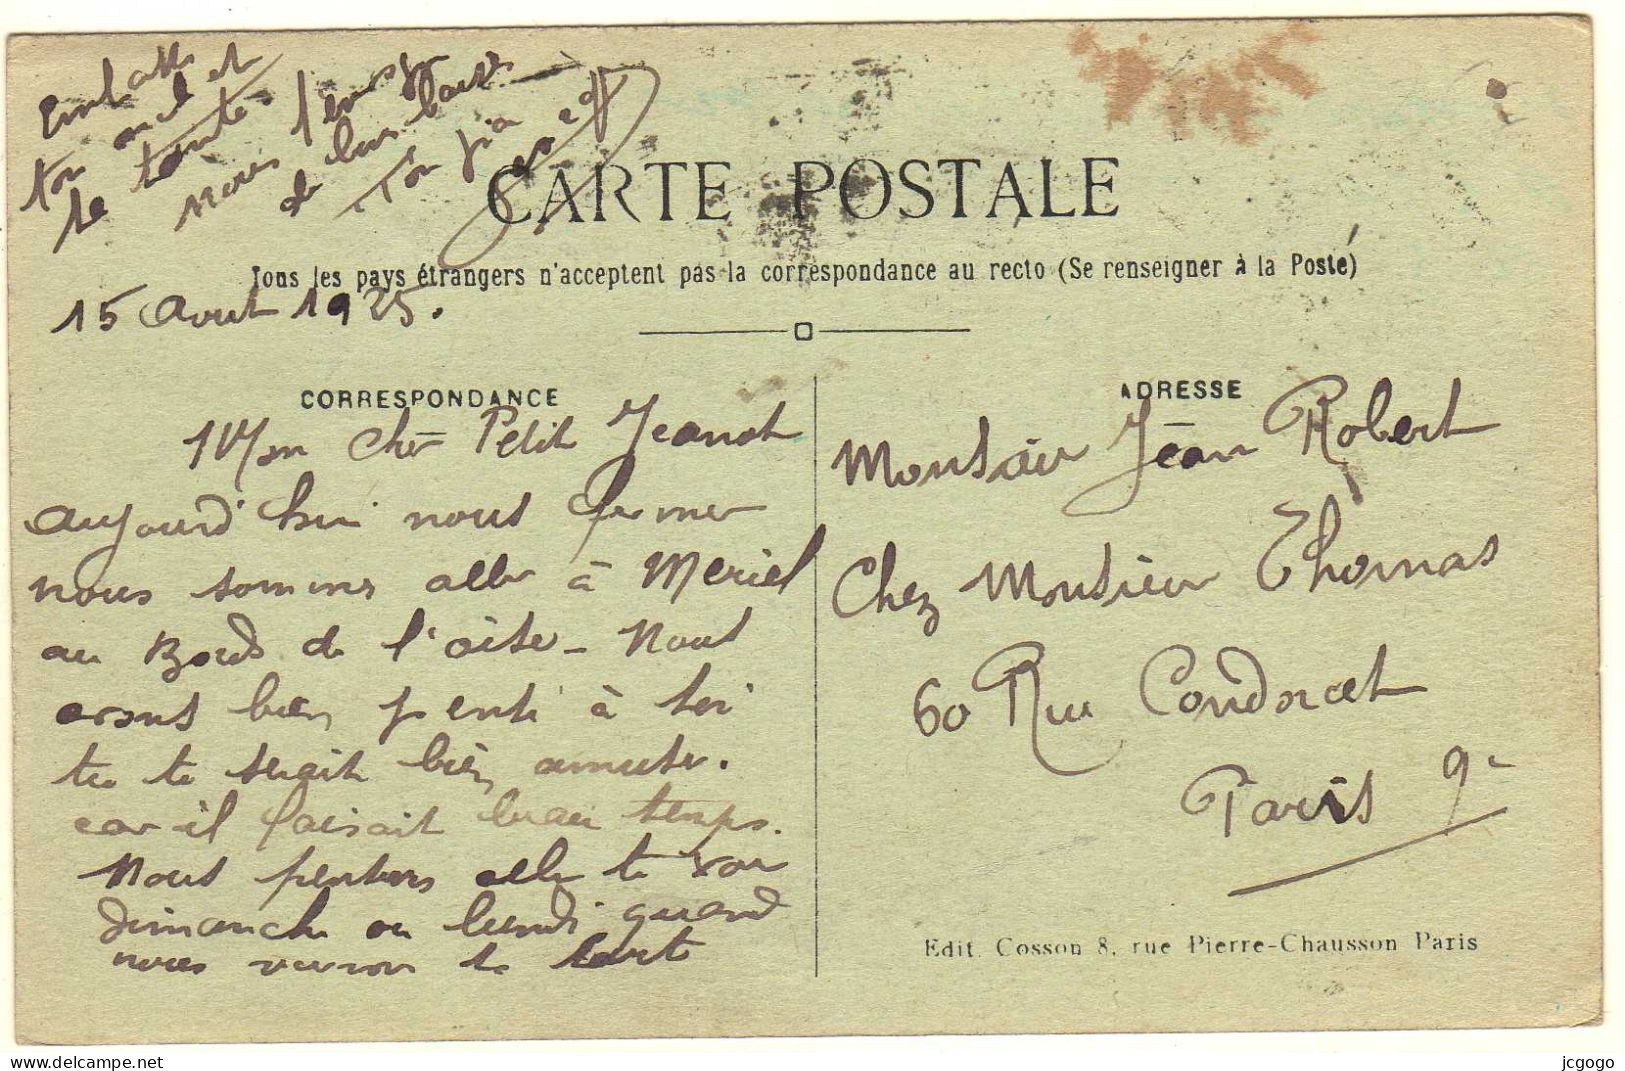 CARTE POSTALE
Tous les pays étrangers n'acceptent pas la correspondance au recto (Se renseigner à la Poste)
15 Aout 1925.
CORRESPONDANCE
Mon cher Petit Jeanot
aujourd'hui nous
nous sommes alle à Meriel
au Bords de l'oise - Nous
avons bien pensé à toi
tu te serait bien amuse.
car il faisait beau temps.
Nous pensons alle te voir
dimanche ou lundi quand
nous
Embrasse
ton oncle et
ta tante
nous t'envoyon
de bon baises
ADRESSE
Monsieur Jean Robert
Chez Monsieur Thomas
60 Rue Condorcet
Paris 9e
Edit. Cosson 8, rue Pierre-Chausson Paris
jcgogo